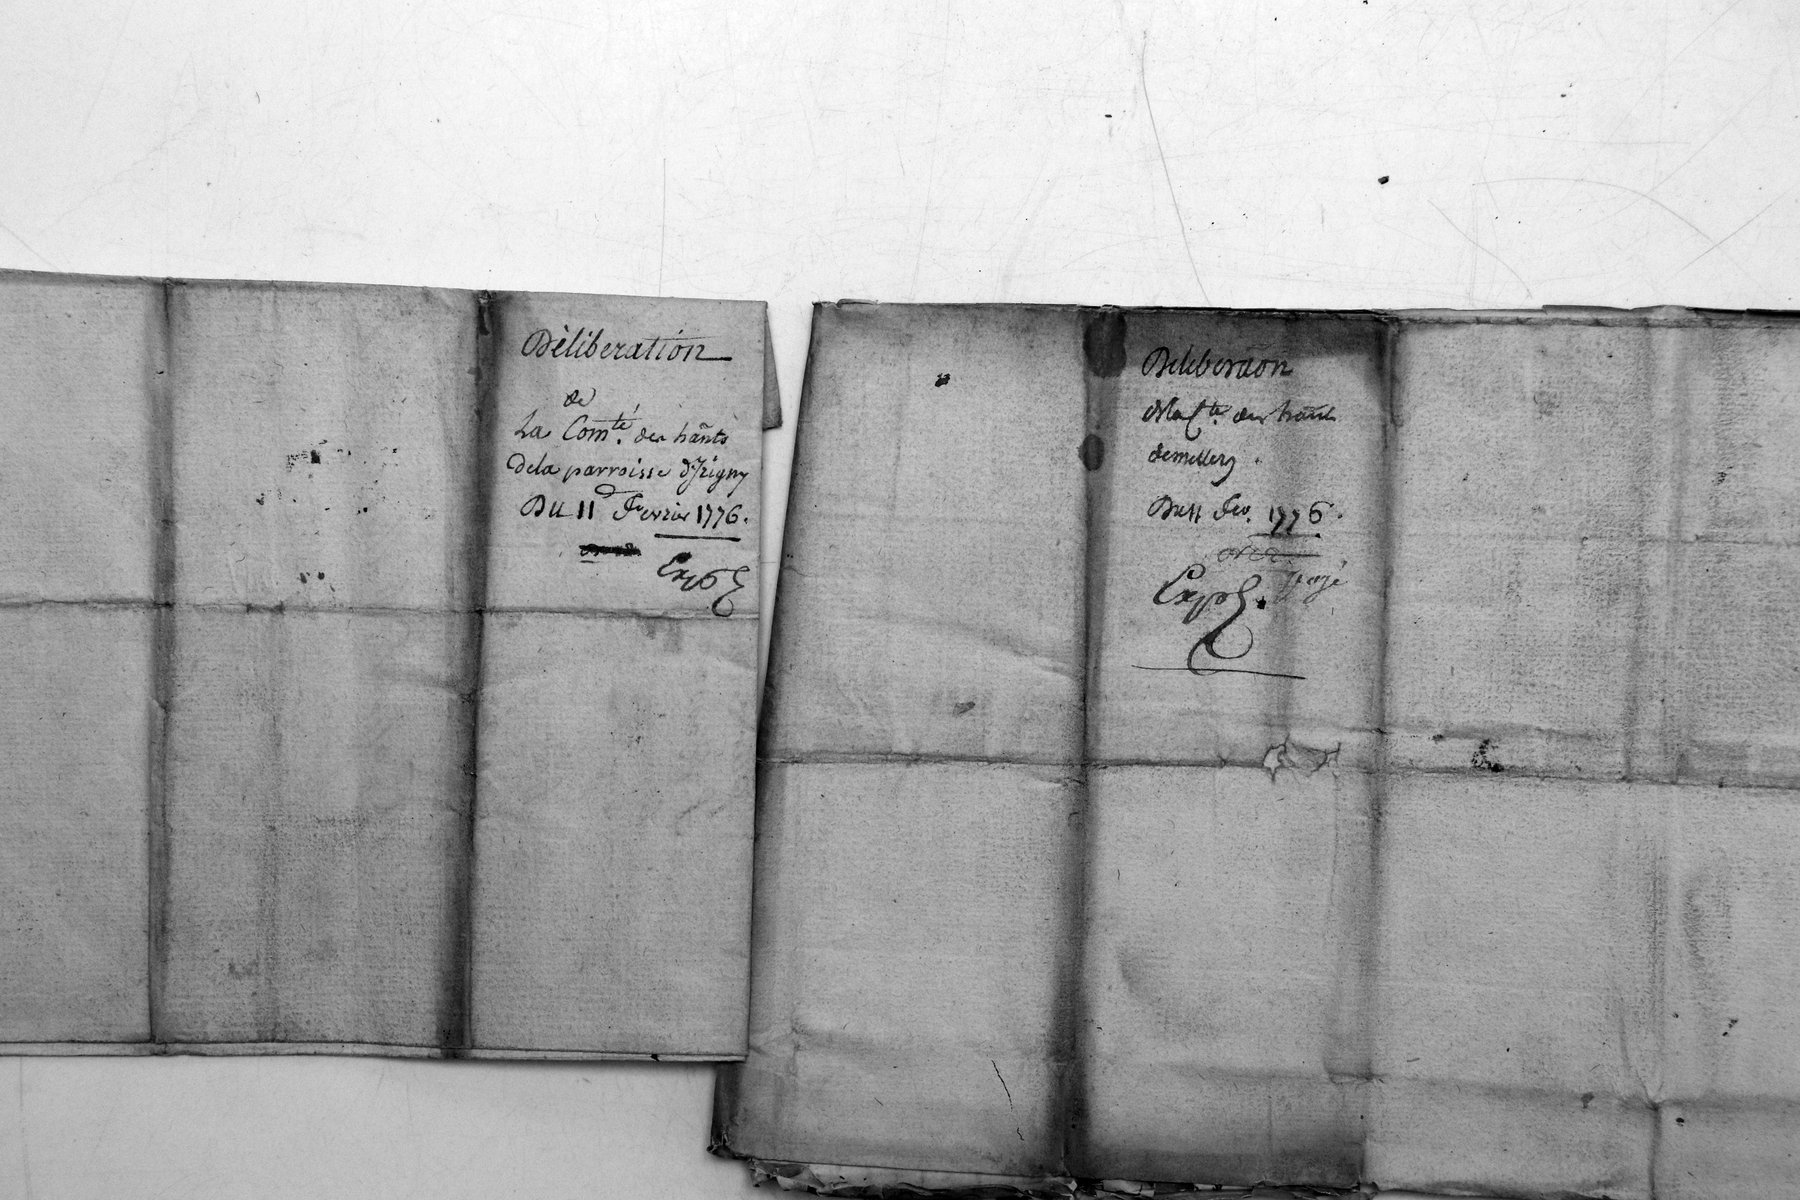 Déliberation
de
La Comté. des hãnts
dela parroisse d'Irigny
Du 11d Fevrier 1776.
Expé
Deliberãon
de la Cté. des hãnts
de millery
Du 11 fev. 1776.
Expé. payé